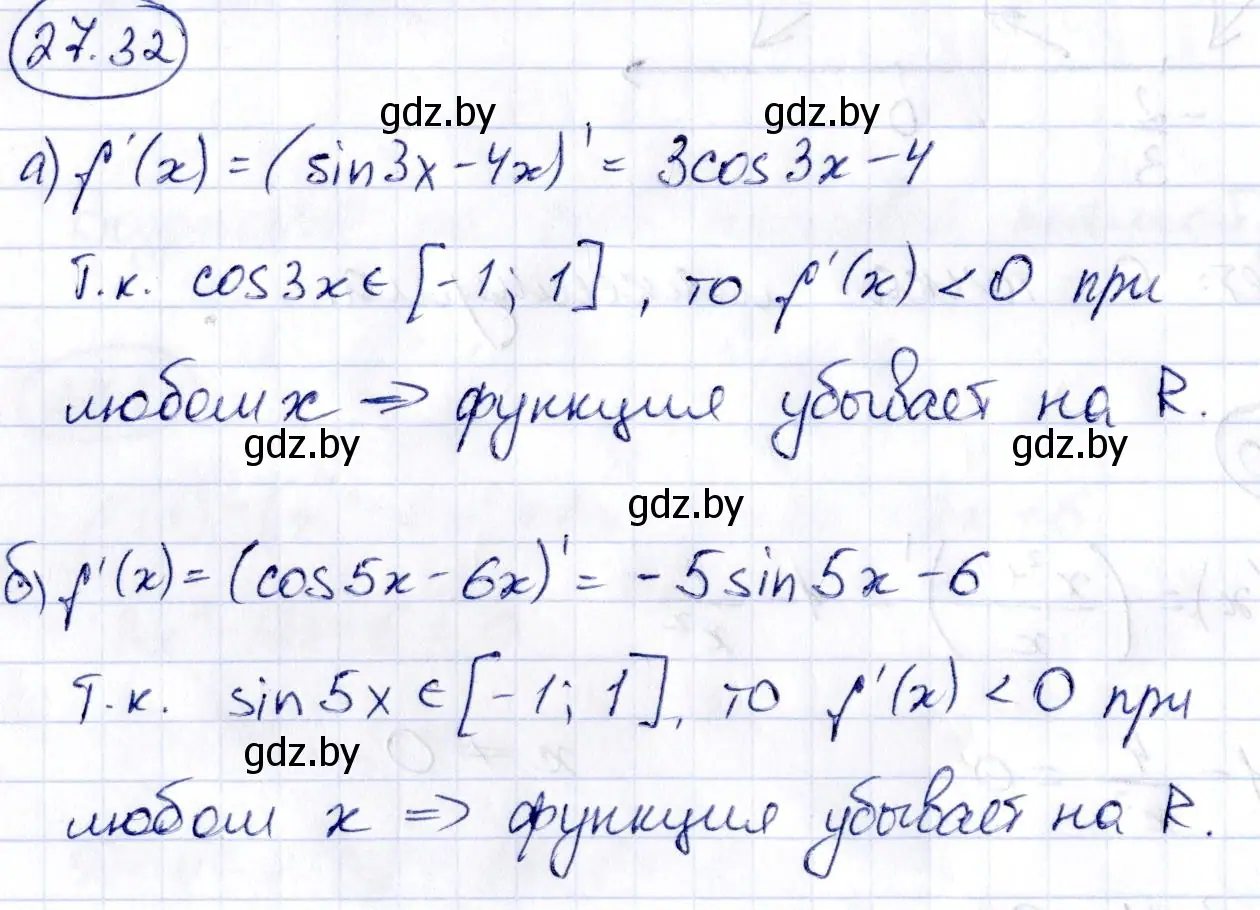 27.32
gdz.by gdz.by
а) f'(x) = (sin3x - 4x)' = 3cos3x - 4
Т.к. cos3x ∈ [-1; 1], то f'(x) < 0 при
любом x => функция убывает на R.
gdz.by gdz.by
gdz.by
б) f'(x) = (cos5x - 6x)' = -5sin5x - 6
Т.к. sin5x ∈ [-1; 1], то f'(x) < 0 при
gdz.by
любом x => функция убывает на R.